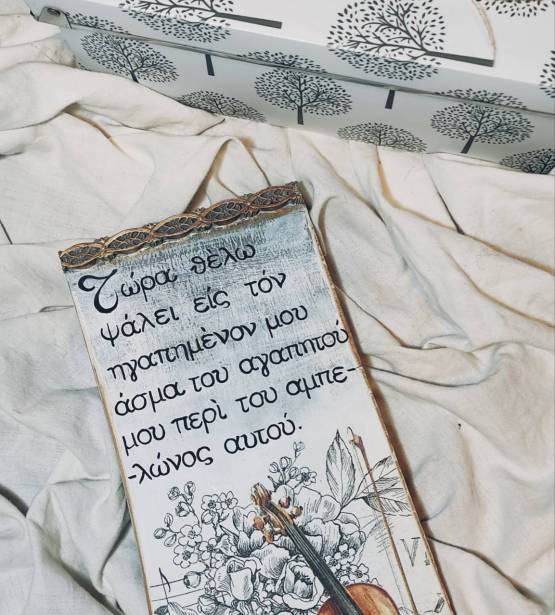 Τώρα θελω
ψάλει είς τόν
ηγαπημὲνον μου
άσμα του αγαπητού
μου περὶ του αμπε-
-λώνος αυτού.
V.